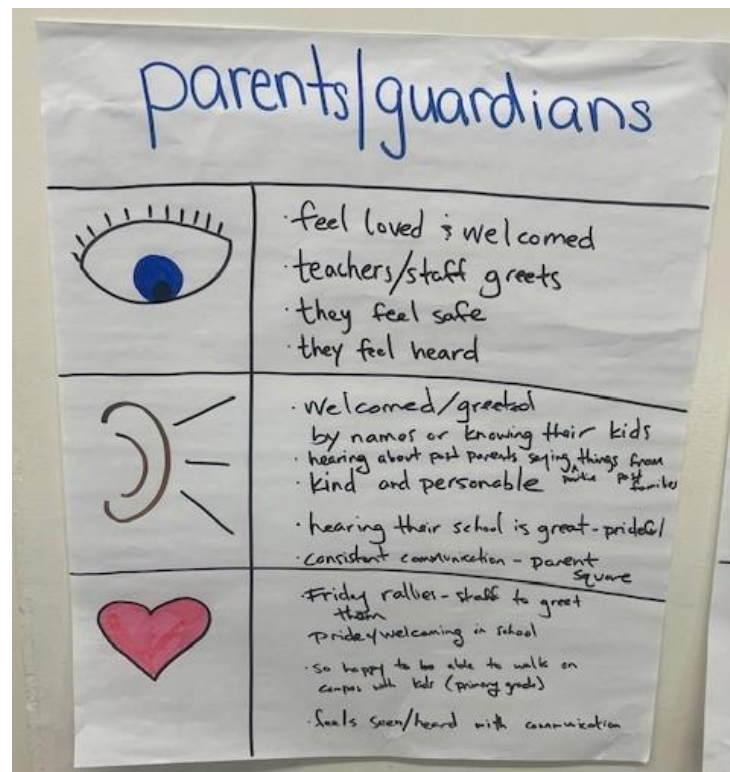 parents/guardians
· feel loved & welcomed
· teachers/staff greets
· they feel safe
· they feel heard
· welcomed/greeted
by names or knowing their kids
· hearing about past parents saying positive things from past families
· kind and personable
· hearing their school is great - prideful
· consistent communication - parent
square
· Friday rallies - staff to greet
them
pride/welcoming in school
· so happy to be able to walk on
campus with kids (primary grade)
· feels seen/heard with communication